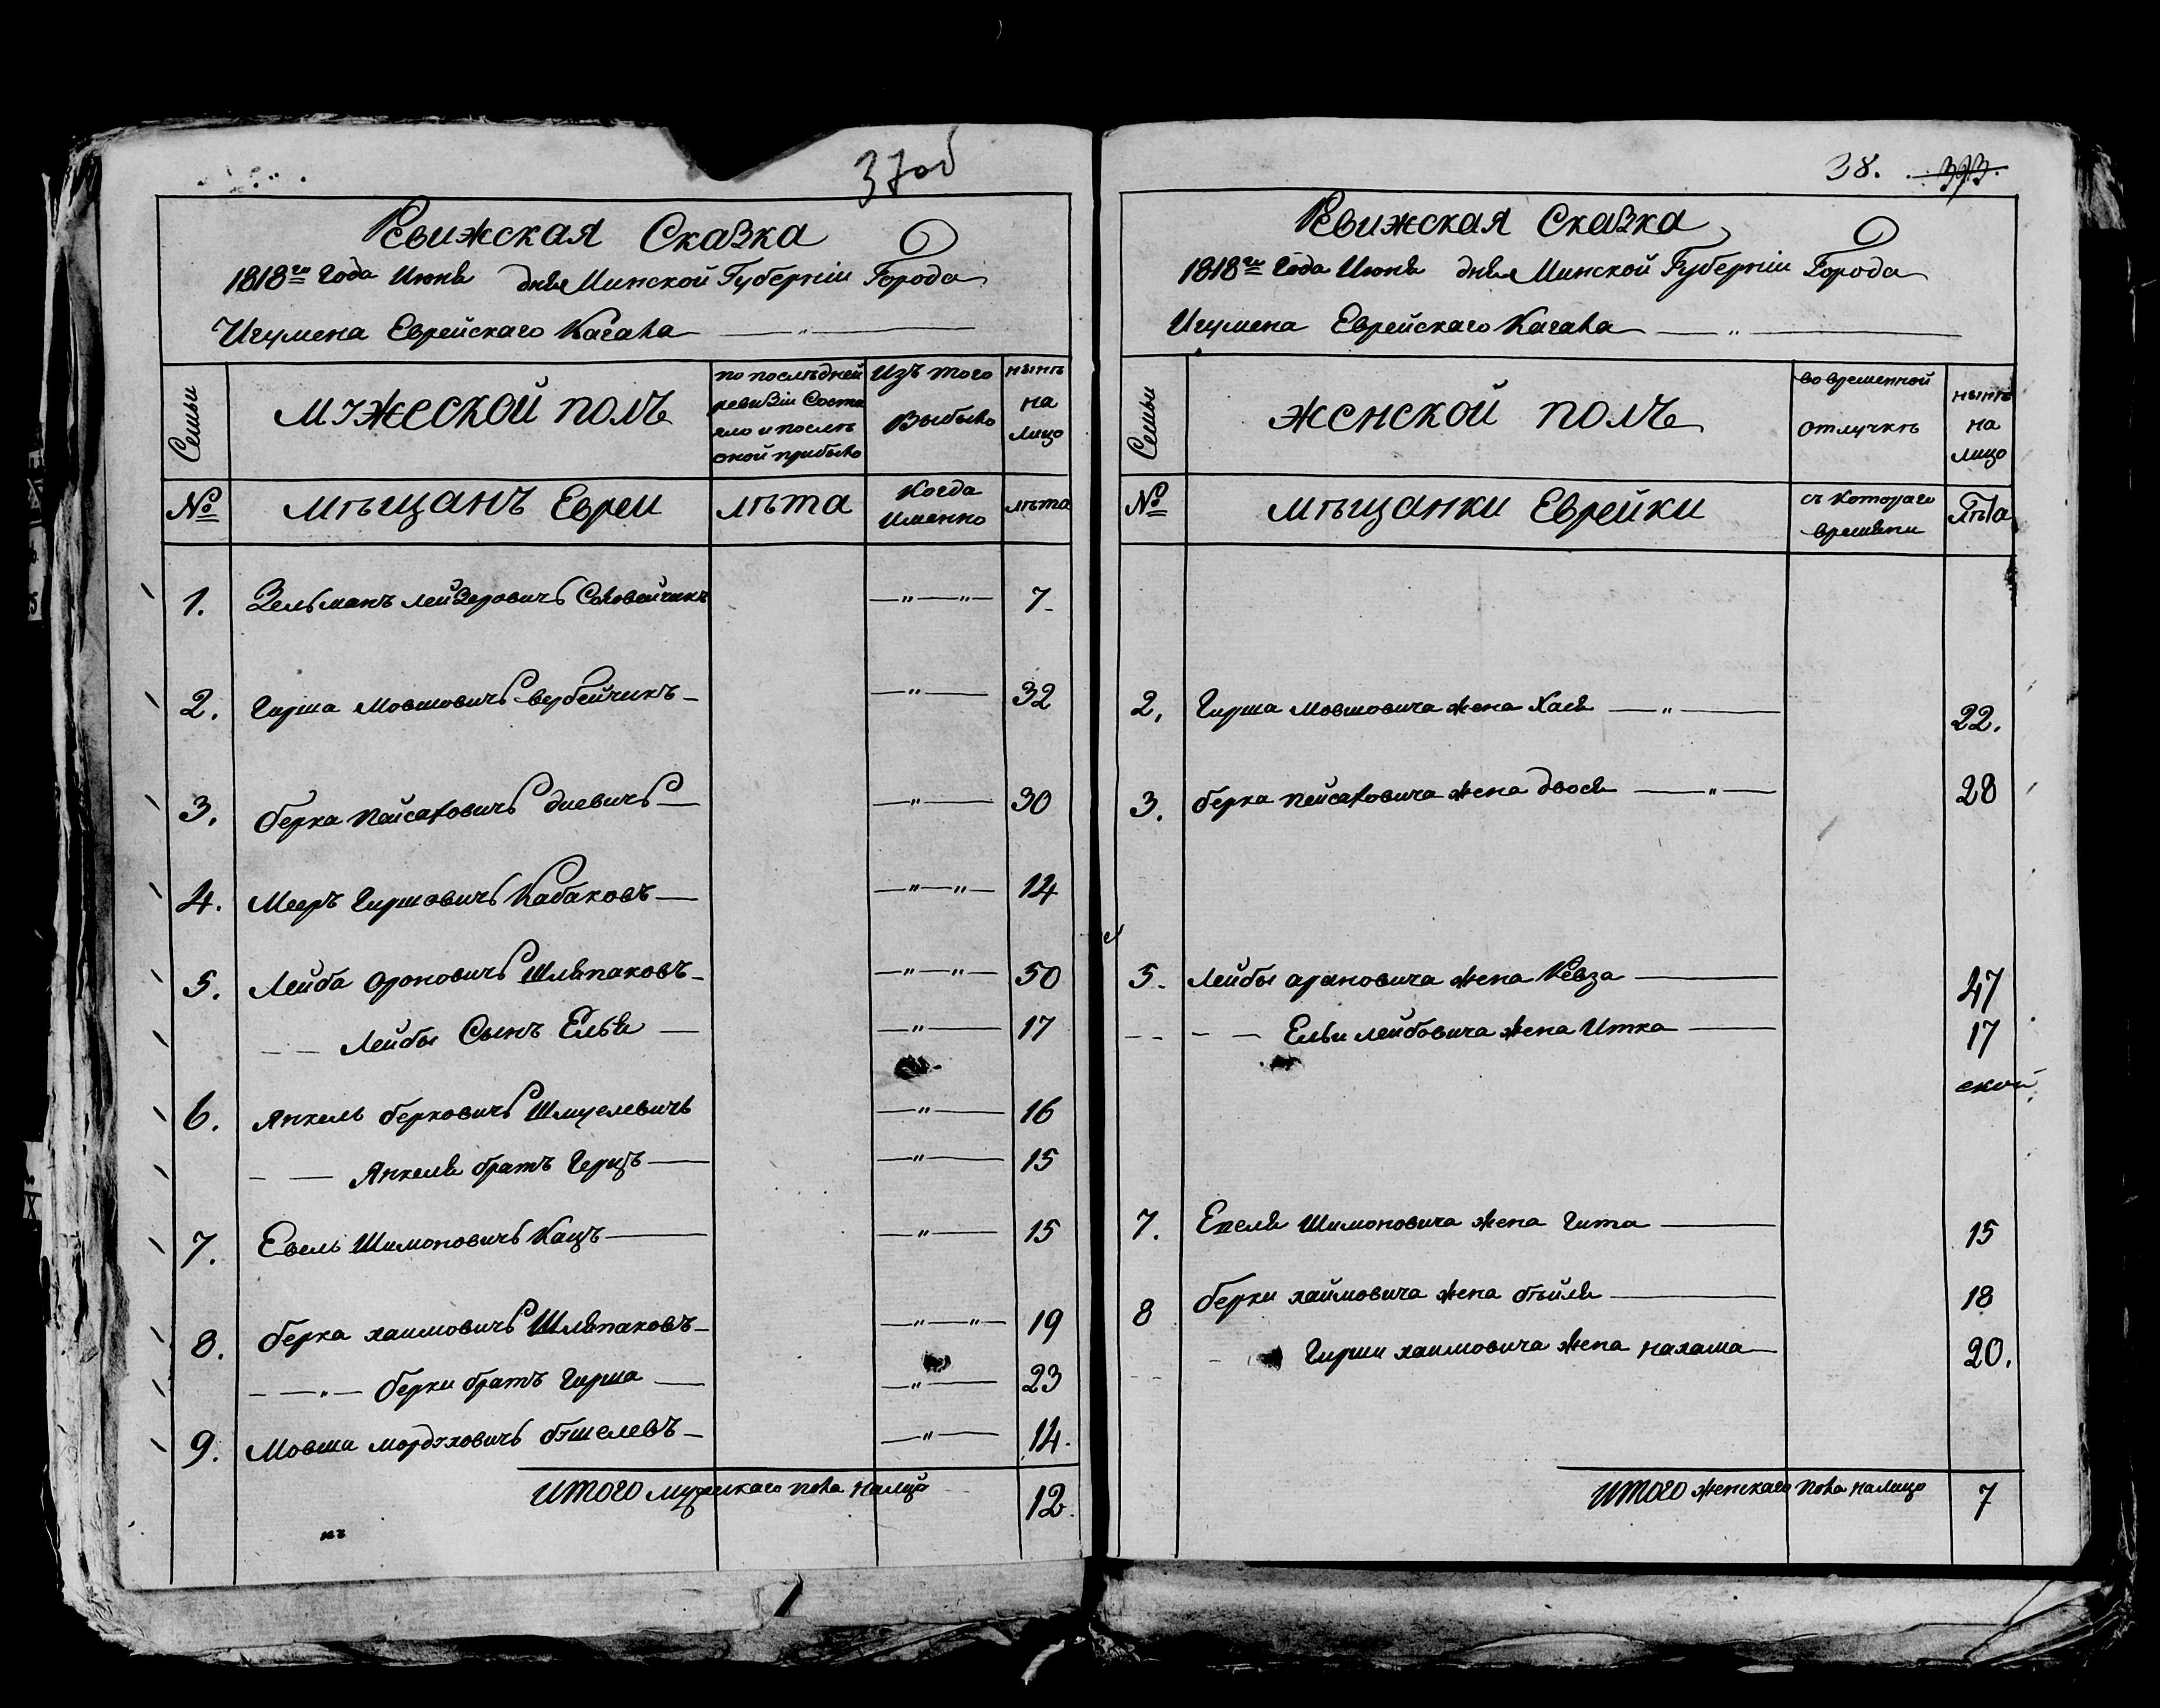 37об
Ревижская Сказка
1818го Года Июня дня Минской Губерніи Города
Игумена Еврейскаго Кагала
Семьи
Мужеской полъ
по послѣдней ревизіи Состояло и послѣ оной прибыло
Изъ того Выбыло
нынѣ на лицо
№
Мѣщанъ Евреи
лѣта
Когда Именно
лѣта
1. Зельманъ Лейзеровичъ Соловейчикъ — " — " — 7
2. Гирша Мовшовичъ Вербейчикъ — — " — 32
3. Берка Пейсаховичъ — — " — 30
4. Мееръ Гиршовичъ Кабаковъ — — " — " — 14
5. Лейба Ороновичъ Шляпаковъ — — " — " — 50
— — Лейбы Сынъ Елья — — " — 17
6. Янкель Берковичъ Шмуелевичъ — " — 16
— — Янкеля братъ Герцъ — — " — 15
7. Евель Шимоновичъ Кацъ — — " — 15
8. Берка Хаимовичъ Шляпаковъ — — " — " — 19
— " — Берки братъ Гирша — — " — 23
9. Мовша Мордуховичъ — — " — 14.
Итого мужескаго пола налицо 12.
38. 393.
Ревижская Сказка
1818го Года Июня дня Минской Губерніи Города
Игумена Еврейскаго Кагала — " —
Семьи
Женской полъ
во временной отлучкѣ
нынѣ на лицо
№
Мѣщанки Еврейки
съ котораго времени
Лѣта
2, Гирша Мовшовича жена Хася — " — 22.
3. Берка Пейсаховича жена Двося — " — 28
5. Лейбы Ароновича жена — 47
— — — Ельи Лейбовича жена Итка — 17
7. Евеля Шимоновича жена Гита — 15
8 Берки Хаймовича жена Бѣйля — 18
Гирши Хаимовича жена Нахама — 20.
Итого женскаго пола налицо 7